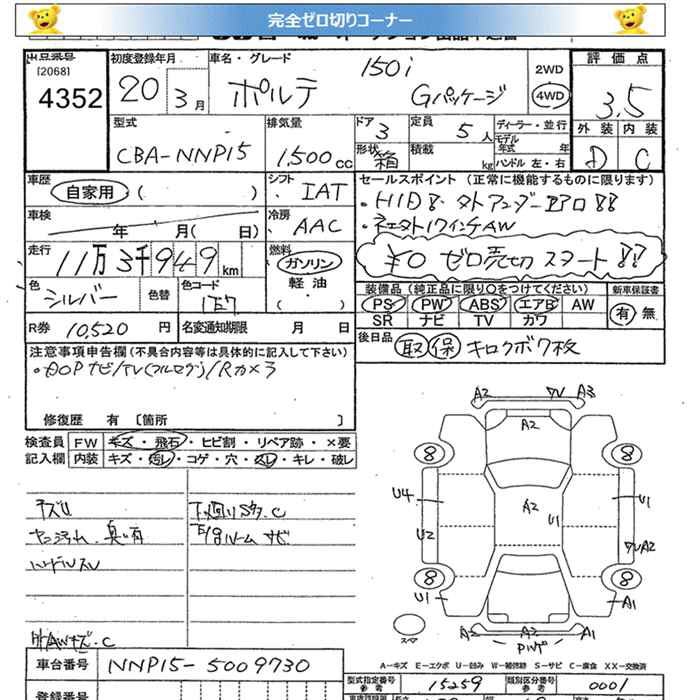 完全ゼロ切りコーナー
出品番号
[2068]
4352
初度登録年月
20年 3月
車名・グレード
150i
ポルテ
Gパッケージ
2WD
4WD
評価点
3.5
外装 内装
D C
型式
CBA-NNP15
排気量
1,500cc
ドア
3
形状
箱
定員
5人
積載
kg
ディーラー・並行
モデル年式 年
ハンドル 左・右
車歴
自家用 ( )
シフト
IAT
車検
年 月( 日)
冷房
AAC
走行
11万3千949km
燃料
ガソリン
軽油
( )
色
シルバー
色替
色コード
1E7
R券 10,520円
名変通知期限 月 日
セールスポイント (正常に機能するものに限ります)
¥0 ゼロ売切 スタート!!
装備品(純正品に限り○をつけてください)
PS PW ABS エアB AW
SR ナビ TV カワ
新車保証書
有 無
後日品
取 保 キロクボ
注意事項申告欄(不具合内容等は具体的に記入して下さい)
・DOPナビ/TV(フルセグ)/Rカメラ
修復歴 有 [箇所 ]
検査員
記入欄
FW キズ・飛石・ヒビ割・リペア跡・×要
内装 キズ・汚レ・コゲ・穴・スレ・キレ・破レ
下廻りサタ.C
E/gルーム サビ
ハンドルスレ
外AWキズ.C
A2 A3
A2
8 8
U4 A2 U1 U1
U2 A2
8 8
U1 A1
A2 A2 A1
スペア
A-キズ E-エクボ U-凹み W-補修跡 S-サビ C-腐食 XX-交換済
車台番号 NNP15-5009730
型式指定番号 参考 15259
類別区分番号 参考 0001
登録番号